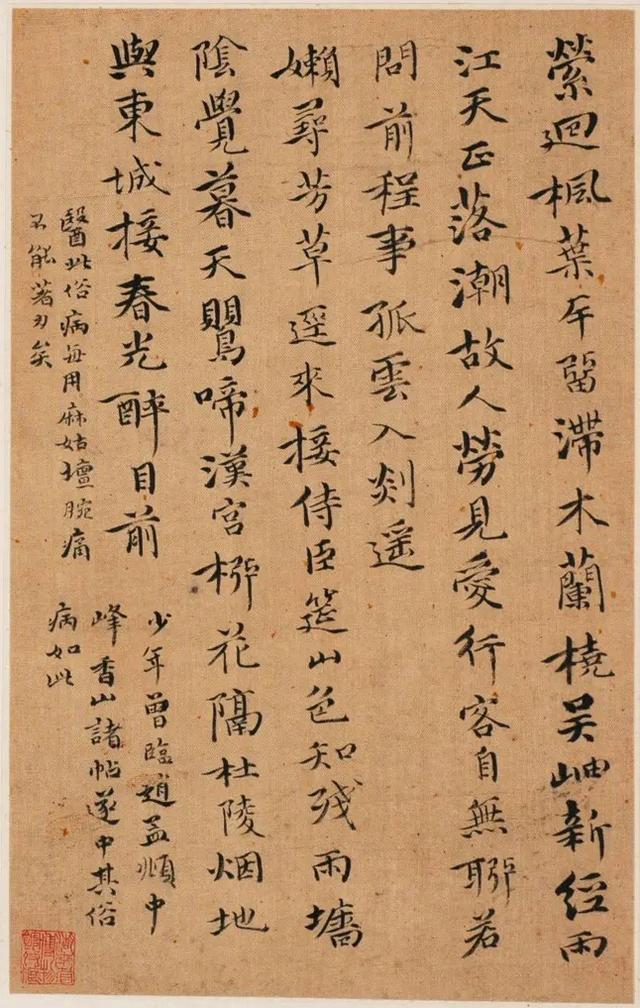 縈迴楓葉岸留滯木蘭橈吳岫新經雨
江天正落潮故人勞見愛行客自無聊若
問前程事孤雲入剡遥
嬾尋芳草逕來接侍臣筵山色知殘雨墻
陰覺暮天鸎啼漢宮柳花隔杜陵烟地
與東城接春光醉目前
少年曾臨趙孟頫中
峰香山諸帖遂中其俗
病如此
醫此俗病每用麻姑壇腕痛
不能著力矣